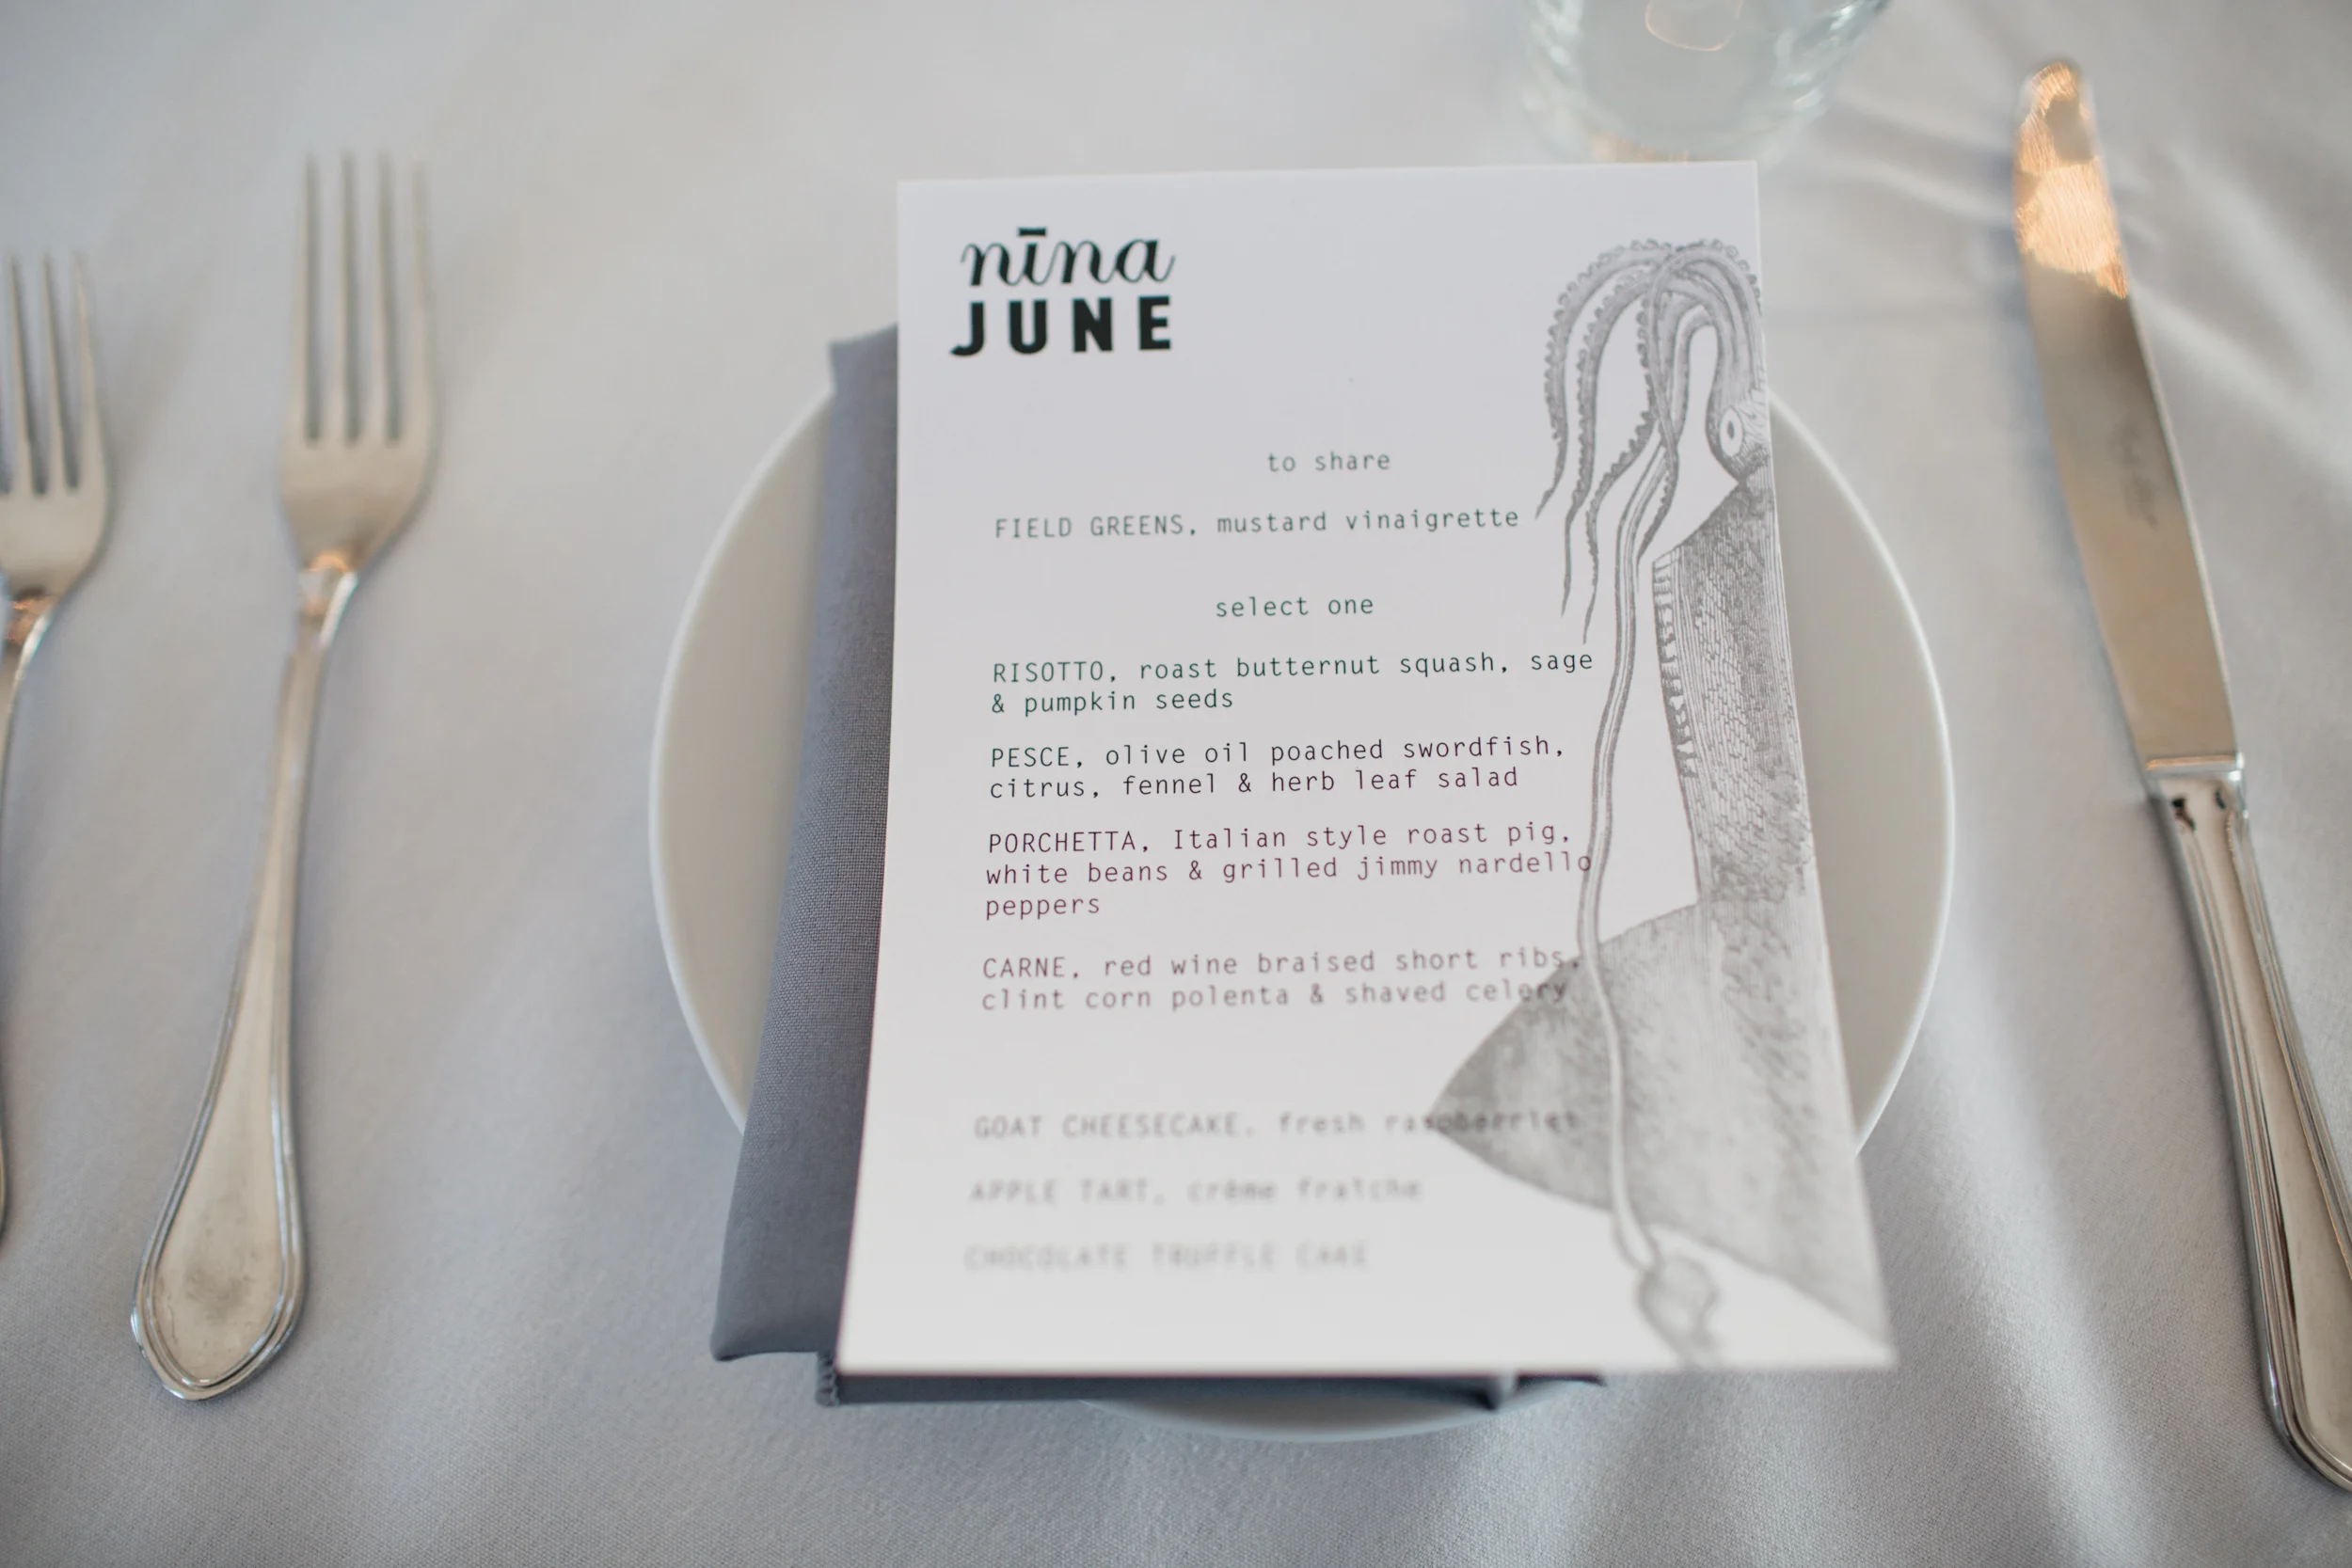 nīna
JUNE
to share
FIELD GREENS, mustard vinaigrette
select one
RISOTTO, roast butternut squash, sage
& pumpkin seeds
PESCE, olive oil poached swordfish,
citrus, fennel & herb leaf salad
PORCHETTA, Italian style roast pig,
white beans & grilled jimmy nardello
peppers
CARNE, red wine braised short ribs,
clint corn polenta & shaved celery
GOAT CHEESECAKE, fresh raspberries
APPLE TART, crème fraîche
CHOCOLATE TRUFFLE CAKE